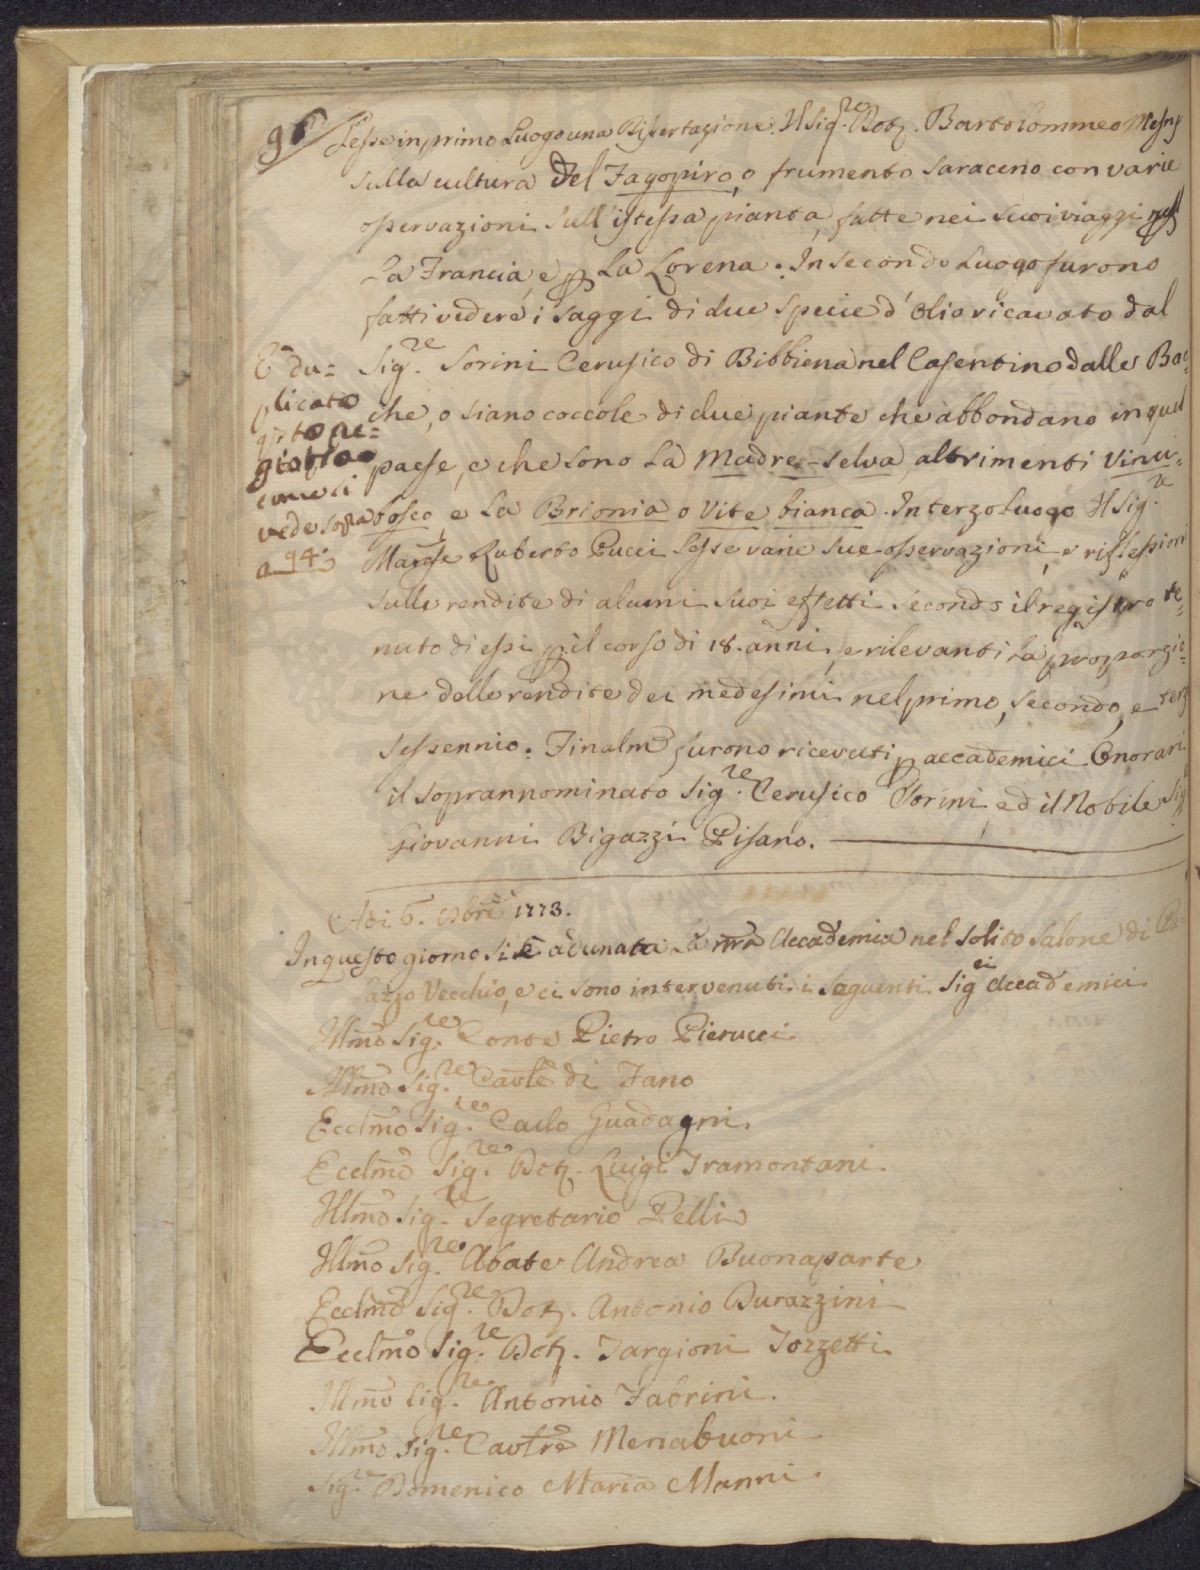 96
Lesse in primo Luogo una Dissertazione Il Sig.re Dott. Bartolommeo Mesny
sulla cultura del Fagopiro, o frumento saraceno con varie
osservazioni sull'istessa pianta, fatte nei suoi viaggi
La Francia, e p La Lorena. In secondo Luogo furono
fatti vedere i saggi di due specie d'olio ricavato dal
Sig.re Sorini Cerusico di Bibbiena nel Casentino dalle Bac=
che, o siano coccole di due piante che abbondano in quel
paese, e che sono La Madre-selva, altrimenti Vinci=
bosco, e La Brionia o Vite bianca. In terzo Luogo Il Sig.re
March.e Ruberto Pucci Lesse varie sue osservazioni, e riflessioni
sulle rendite di alcuni suoi effetti secondo il registro te=
nuto di essi p il corso di 18. anni, e rilevanti La proporzio=
ne delle rendite dei medesimi nel primo, secondo, e terz
sessennio. Finalm.e furono ricevuti p accademici Onorari
il soprannominato Sig.re Cerusico Sorini, ed il Nobile Sig
Giovanni Bigazzi Pisano.
È du=
plicato
questo pe=
conosci
vede sopra
a 94.
Adi 6. Xbre 1773.
In questo giorno si è adunata La nra Accademia nel solito salone di Pa
lazzo Vecchio, e ci sono intervenuti i seguenti Sig.ri Accademici
Illmo Sig.re Conte Pietro Pierucci
Illmo Sig.re Cavle di Fano
Ecclmo Sig.re Carlo Guadagni
Ecclmo Sig.re Dott. Luigi Tramontani.
Illmo Sig.re Segretario Pelli
Illmo Sig.re Abate Andrea Buonaparte
Ecclmo Sig.re Dott. Antonio Durazzini
Ecclmo Sig.re Dott. Targioni Tozzetti
Illmo Sig.re Antonio Fabrini.
Illmo Sig.re Cavlre Menabuoni
Sig.re Domenico Maria Manni.